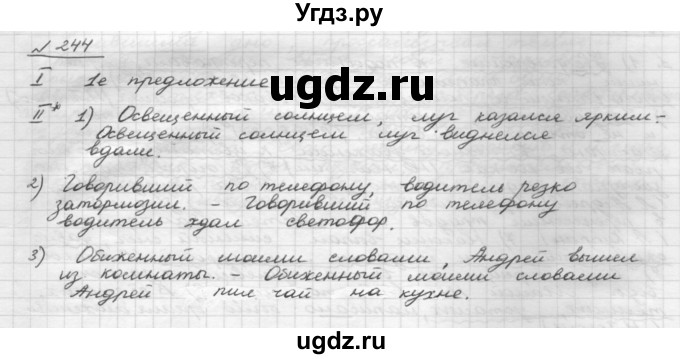 Угдз.ру
№ 244
I 1е предложение
ugdz.ru
II* 1) Освещенный солнцем, луг казался ярким –
Освещенный солнцем луг виднелся
вдали.
2) Говоривший по телефону, водитель резко
затормозил. – Говоривший по телефону
водитель ждал светофор.
3) Обиженный моими словами, Андрей вышел
из комнаты. – Обиженный моими словами
Андрей пил чай на кухне.
ugdz.ru